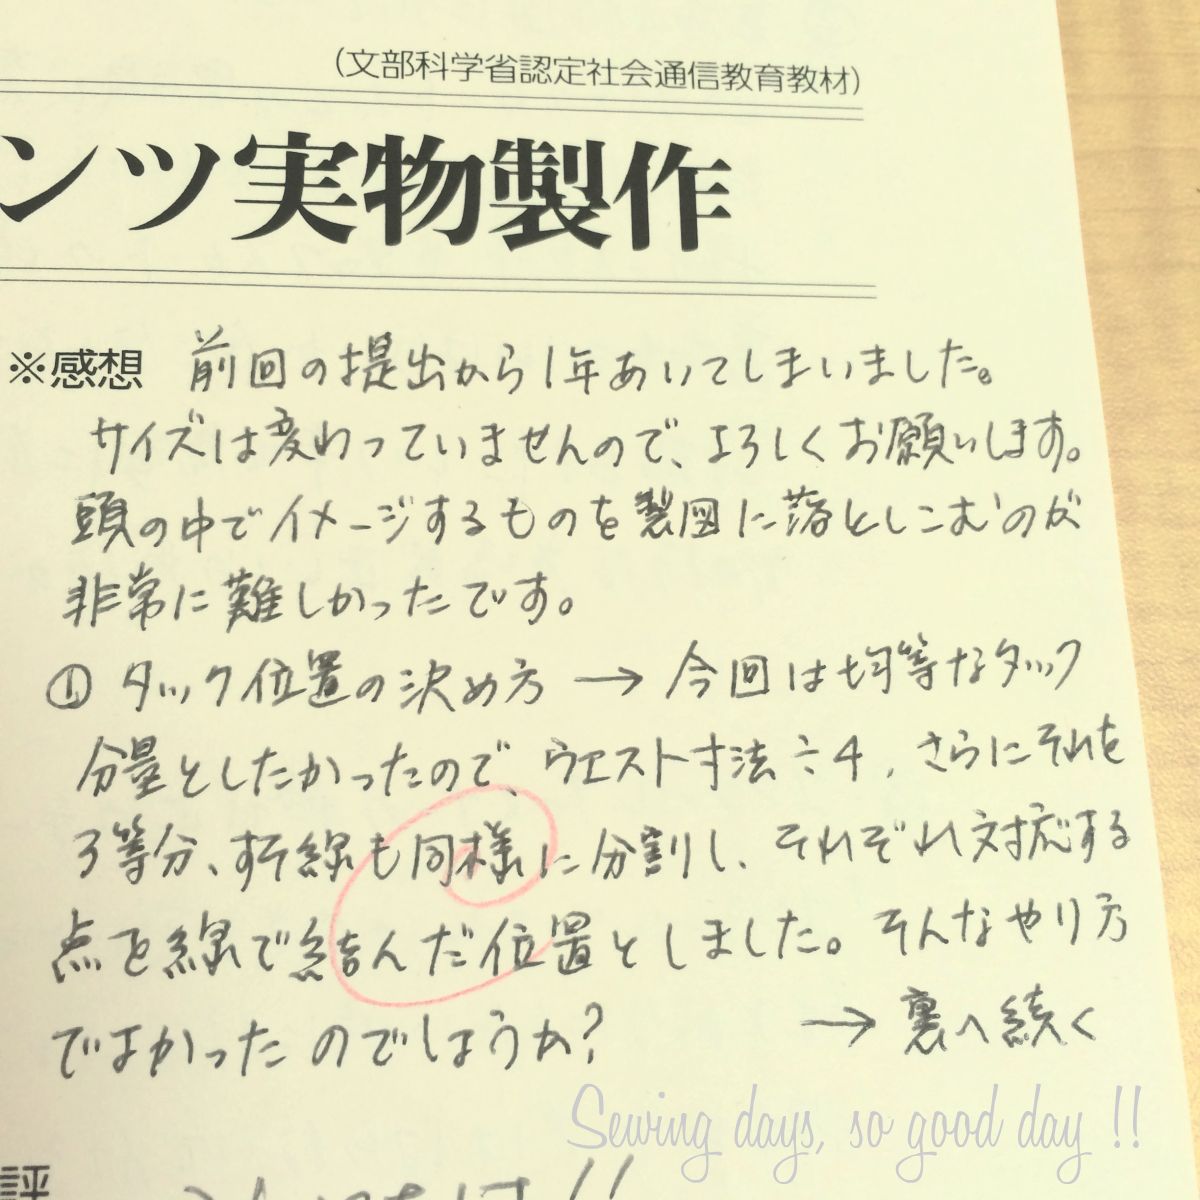 (文部科学省認定社会通信教育教材)
ンツ実物製作
※感想 前回の提出から1年あいてしまいました。
サイズは変わっていませんので、よろしくお願いします。
頭の中でイメージするものを製図に落としこむのが
非常に難しかったです。
① タック位置の決め方 → 今回は均等なタック
分量としたかったので、ウエスト寸法÷4, さらにそれを
3等分、すそ線も同様に分割し、それぞれ対応する
点を線で結んだ位置としました。そんなやり方
でよかったのでしょうか?
→ 裏へ続く
Sewing days, so good day !!
評